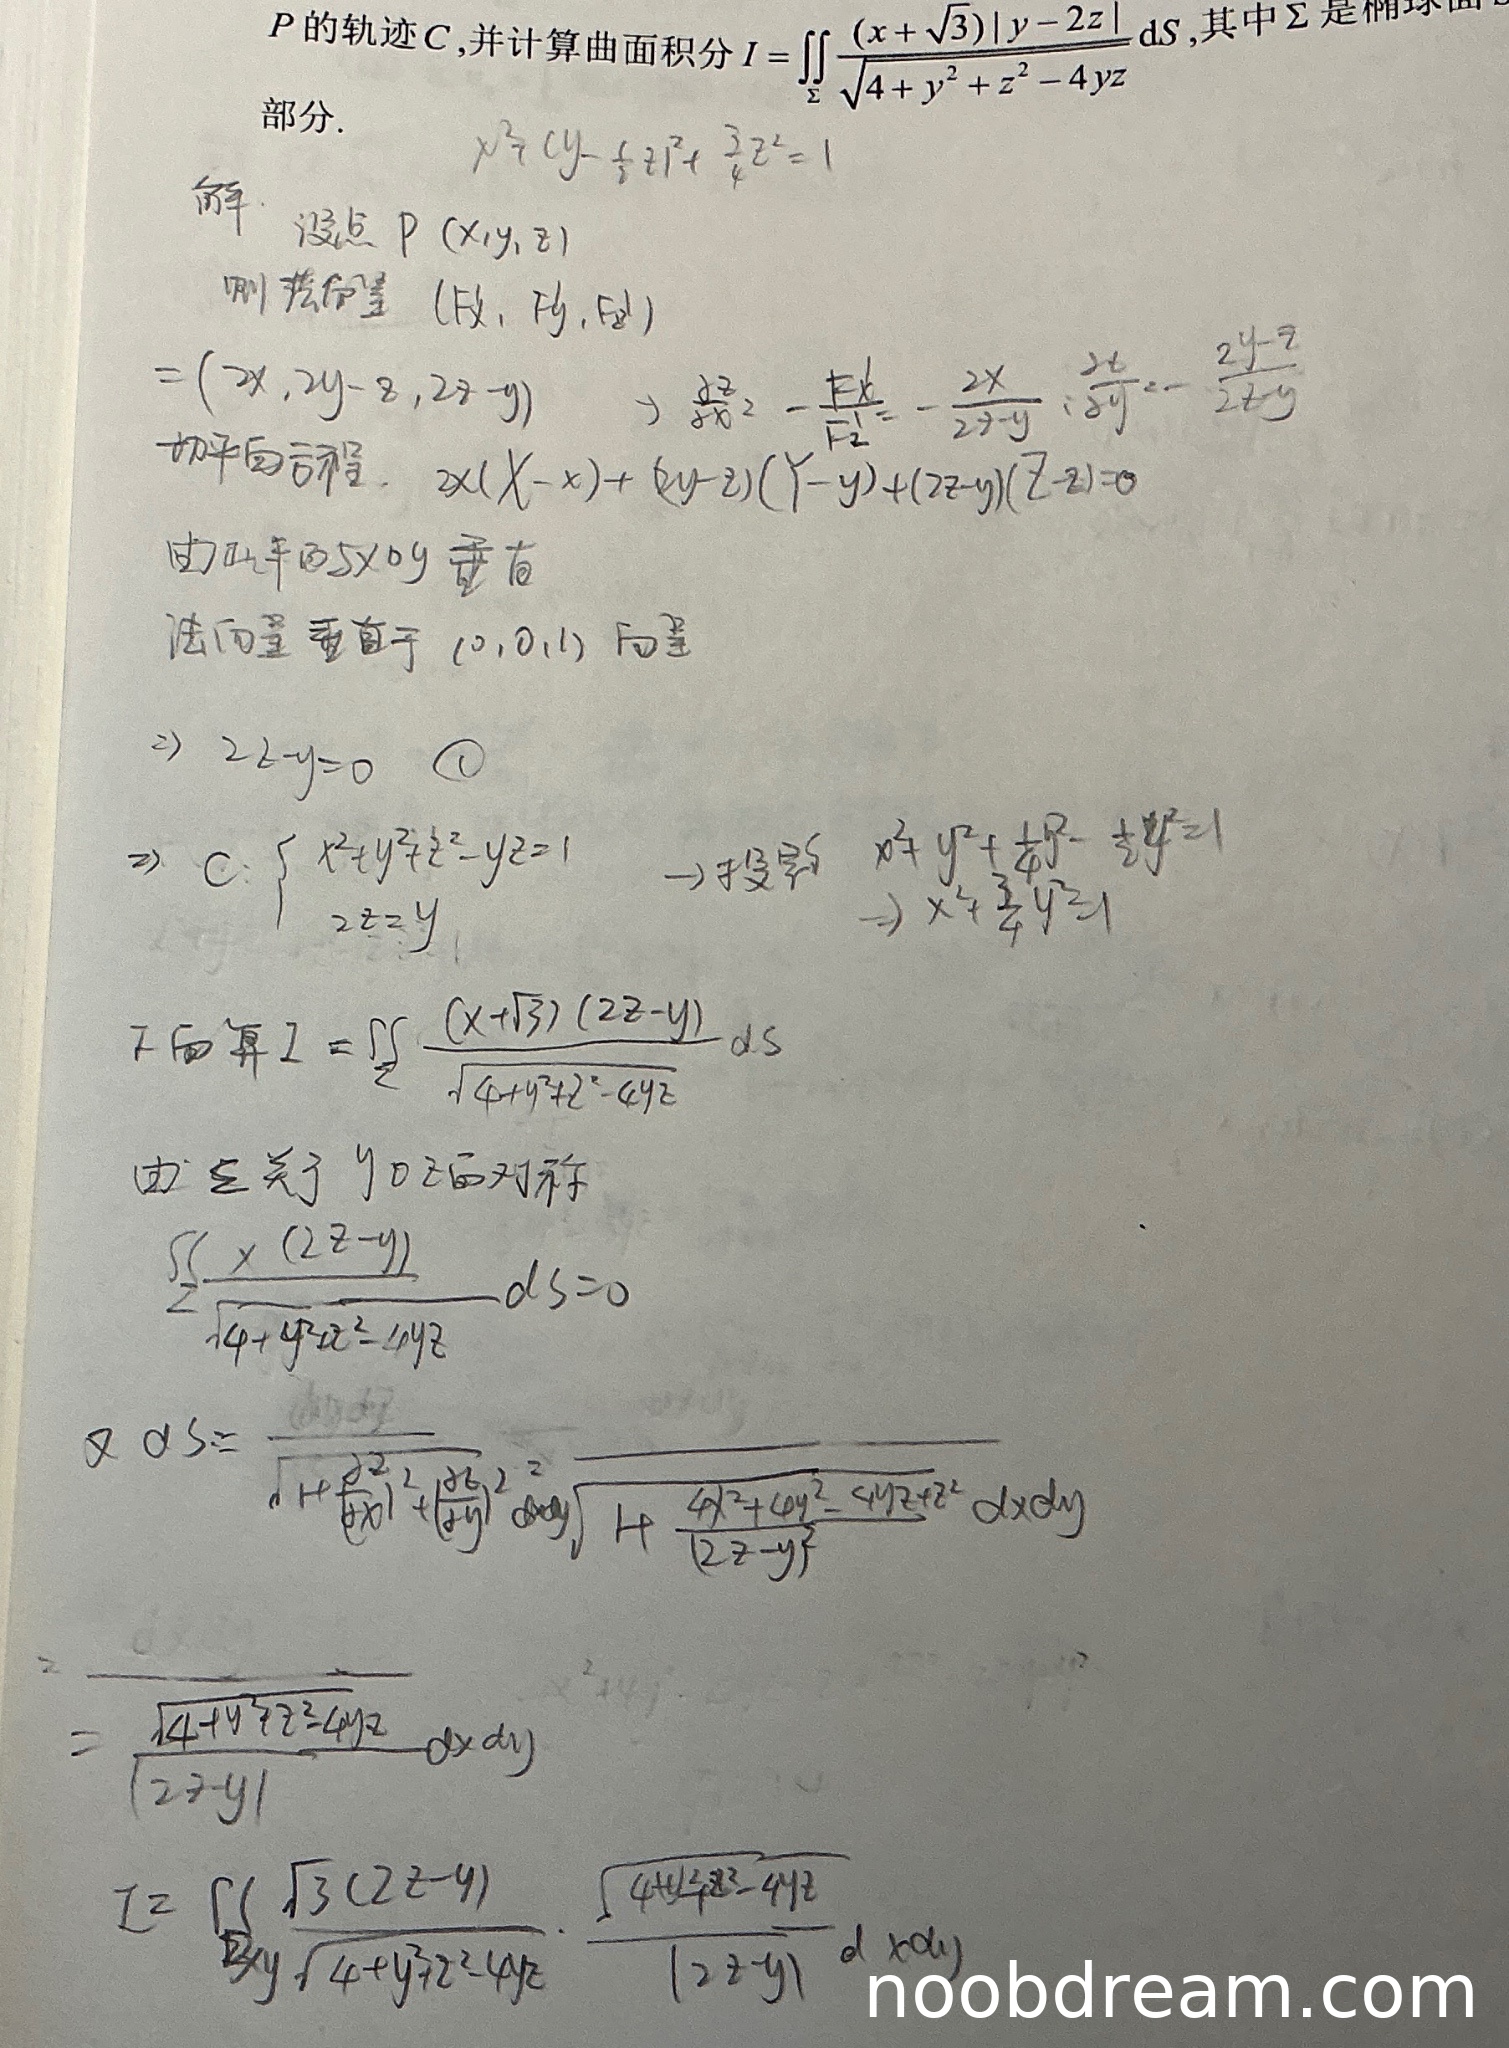 P的轨迹C,并计算曲面积分 I = ∬_Σ (x+√3)|y-2z| / √(4+y²+z²-4yz) dS,其中Σ是椭球面S
部分.
x²+(y-½z)²+¾z²=1
解.
设点 P (x,y,z)
则法向量 (F'x, F'y, F'z)
=(2x, 2y-z, 2z-y) → ∂z/∂x = -F'x/F'z = -2x/(2z-y) , ∂z/∂y = -(2y-z)/(2z-y)
切平面方程. 2x(X-x)+(2y-z)(Y-y)+(2z-y)(Z-z)=0
由切平面与xoy垂直
法向量垂直于 (0,0,1) 向量
⇒ 2z-y=0 ①
⇒ C: { x²+y²+z²-yz=1 →投影 x²+y²+¼y²-½y²=1
2z=y ⇒ x²+¾y²=1
下面算I = ∬_Σ (x+√3)(2z-y) / √(4+y²+z²-4yz) dS
由Σ关于yoz面对称
∬_Σ x(2z-y) / √(4+y²+z²-4yz) dS=0
又 dS = √(1+(∂z/∂x)²+(∂z/∂y)²) dxdy = √(1+(4x²+4y²-4yz+z²)/(2z-y)²) dxdy
=
= √(4+y²+z²-4yz) / |2z-y| dxdy
I = ∬_Dxy √3(2z-y) / √(4+y²+z²-4yz) · √(4+y²+z²-4yz) / |2z-y| dxdy
noobdream.com